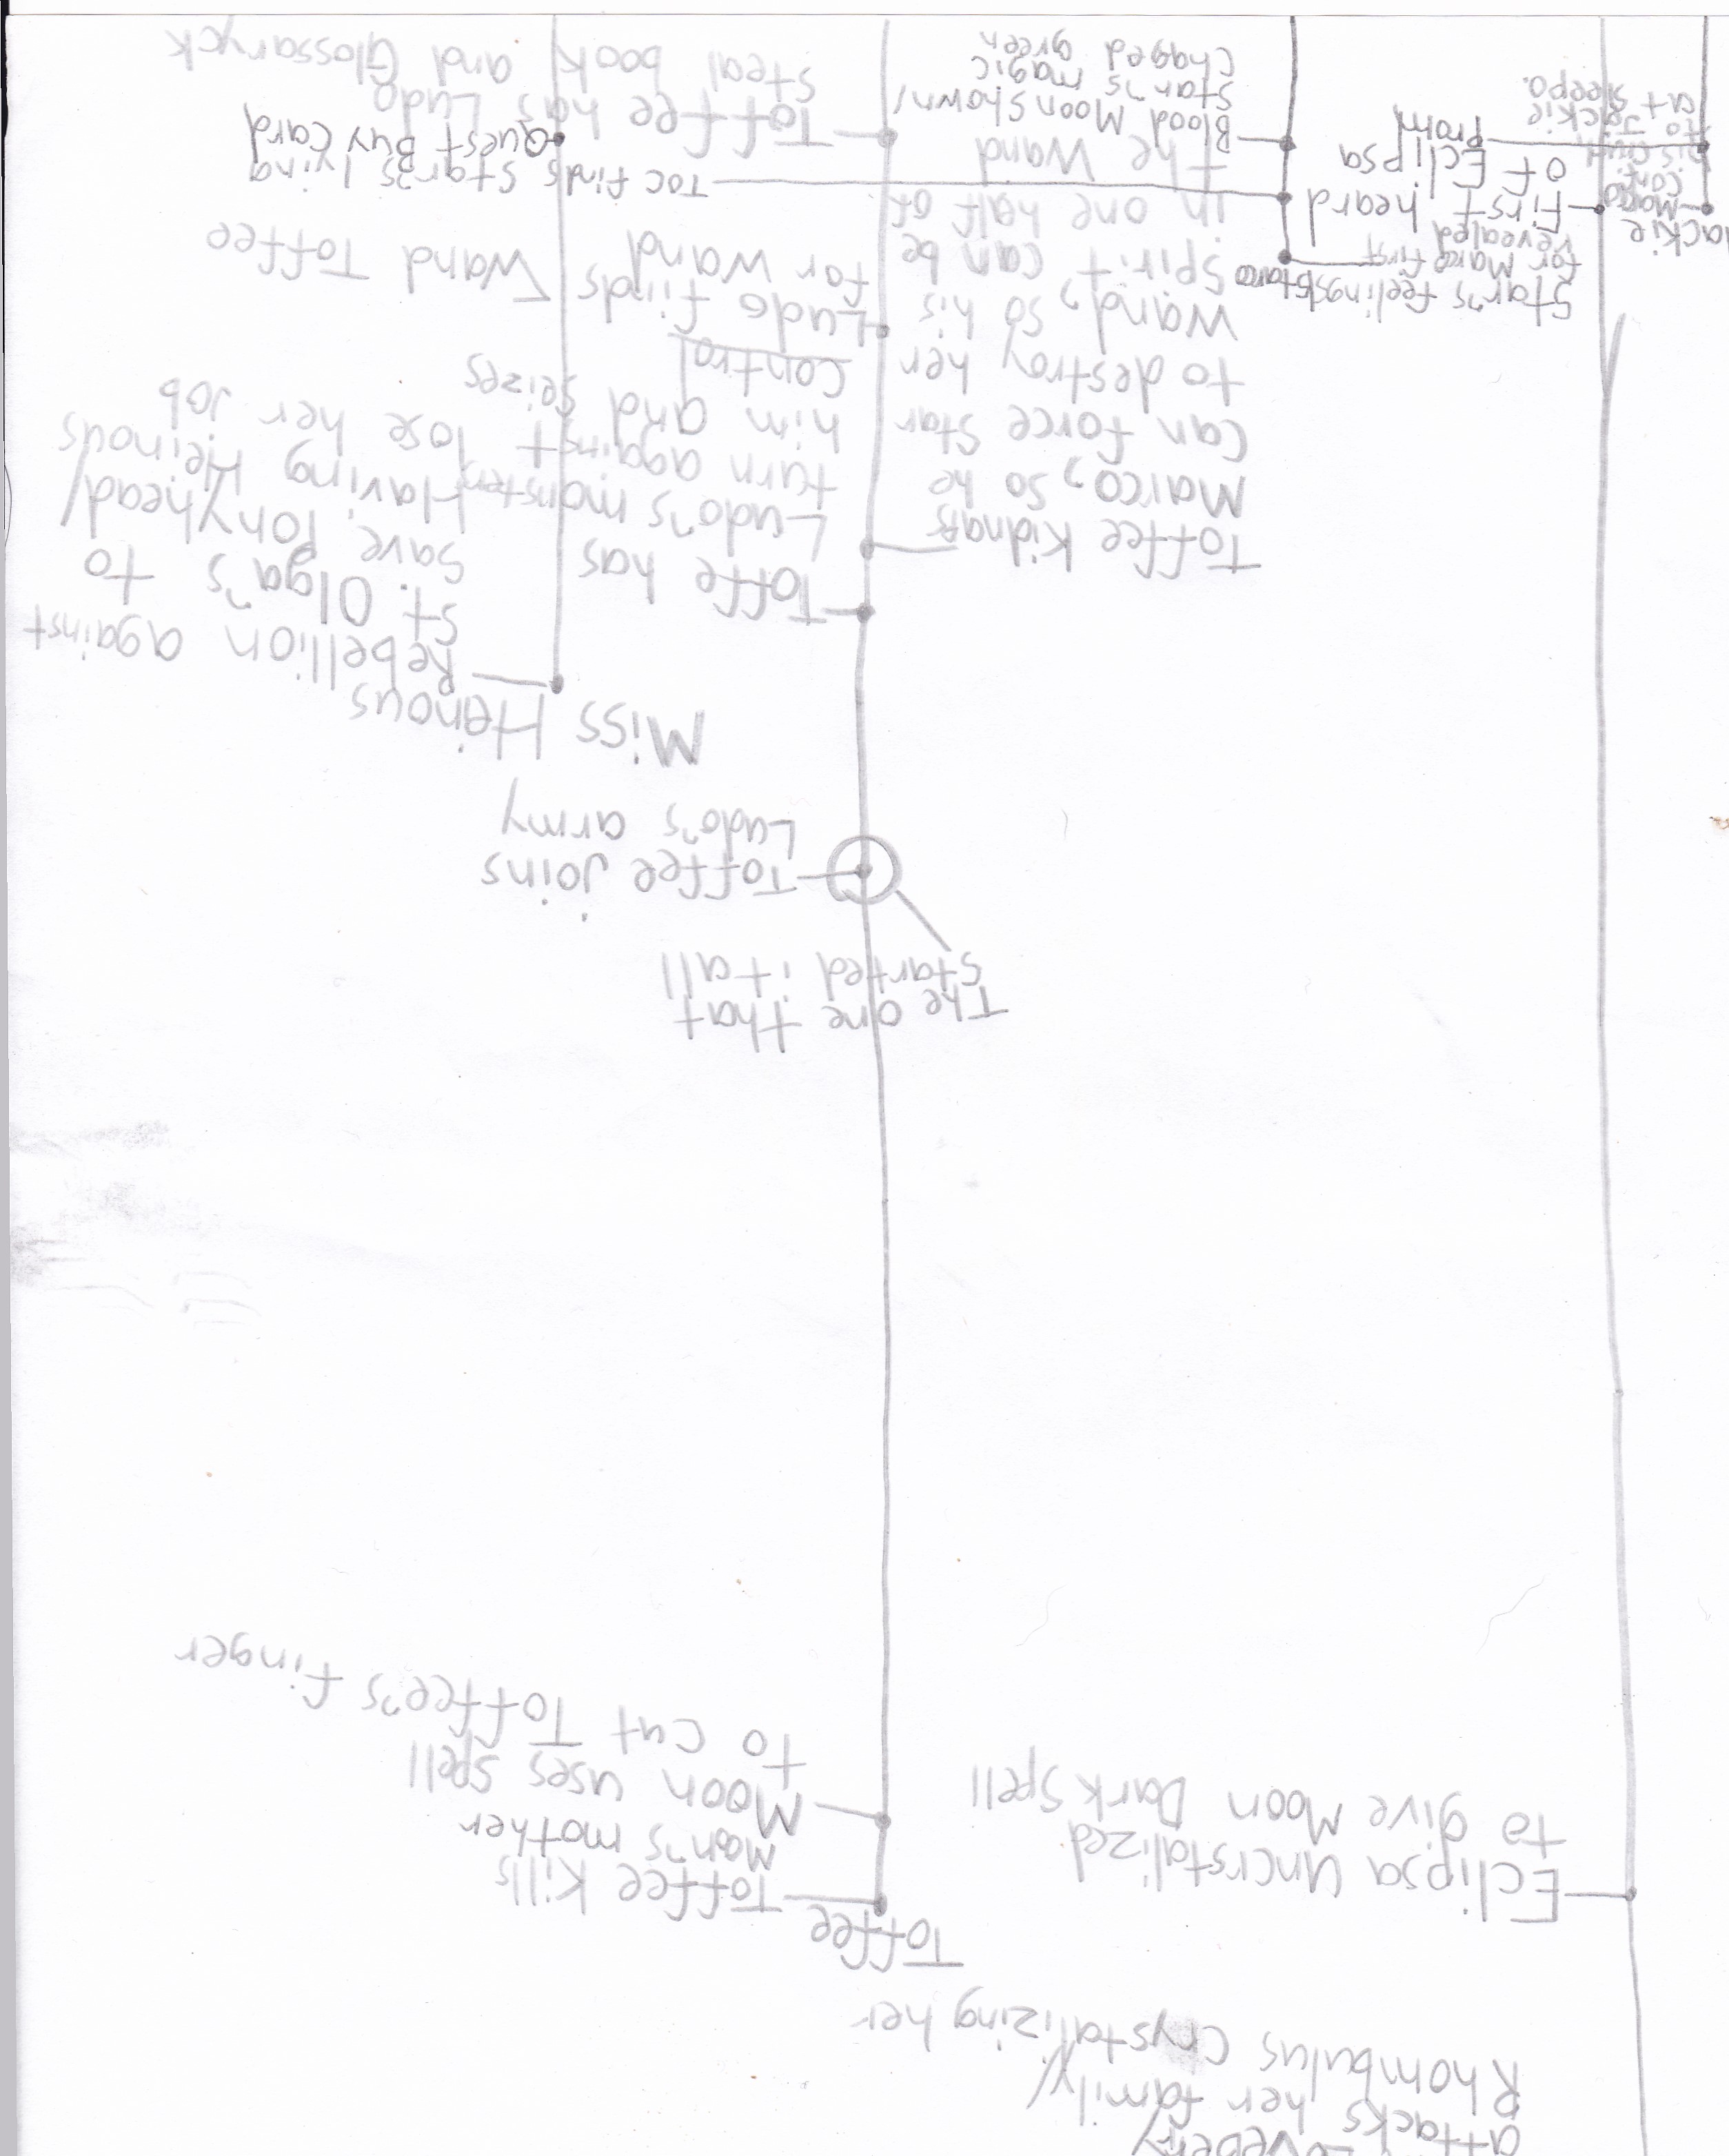 attacks her family/
Rhombulus Crystalizing her
Toffee
Toffee kills
Moon's mother
Moon uses spell
to cut Toffee's finger
Eclipsa Uncrstalized
to give Moon Dark Spell
The one that
started it all
Toffee joins
Ludo's army
Miss Heinous
Rebellion against
St. Olga's to
save Ponyhead/
Having Heinous
lose her job
Toffe has
Ludo's monsters
turn against
him and seizes
control
Toffee kidnaps
Marco, so he
can force Star
to destroy her
wand, so his
spirit can be
in one half of
the wand
Ludo finds
for wand
Wand Toffee
Star's feelings
for Marco first
revealed
Starco
First heard
of Eclipsa
Jackie
Marco
to Jackie
at sleepo.
Prom
TOC finds Star's lying
Quest Buy Card
Blood Moon shown/
Star's magic
Chaged green
Toffee has Ludo
steal book and Glossaryck